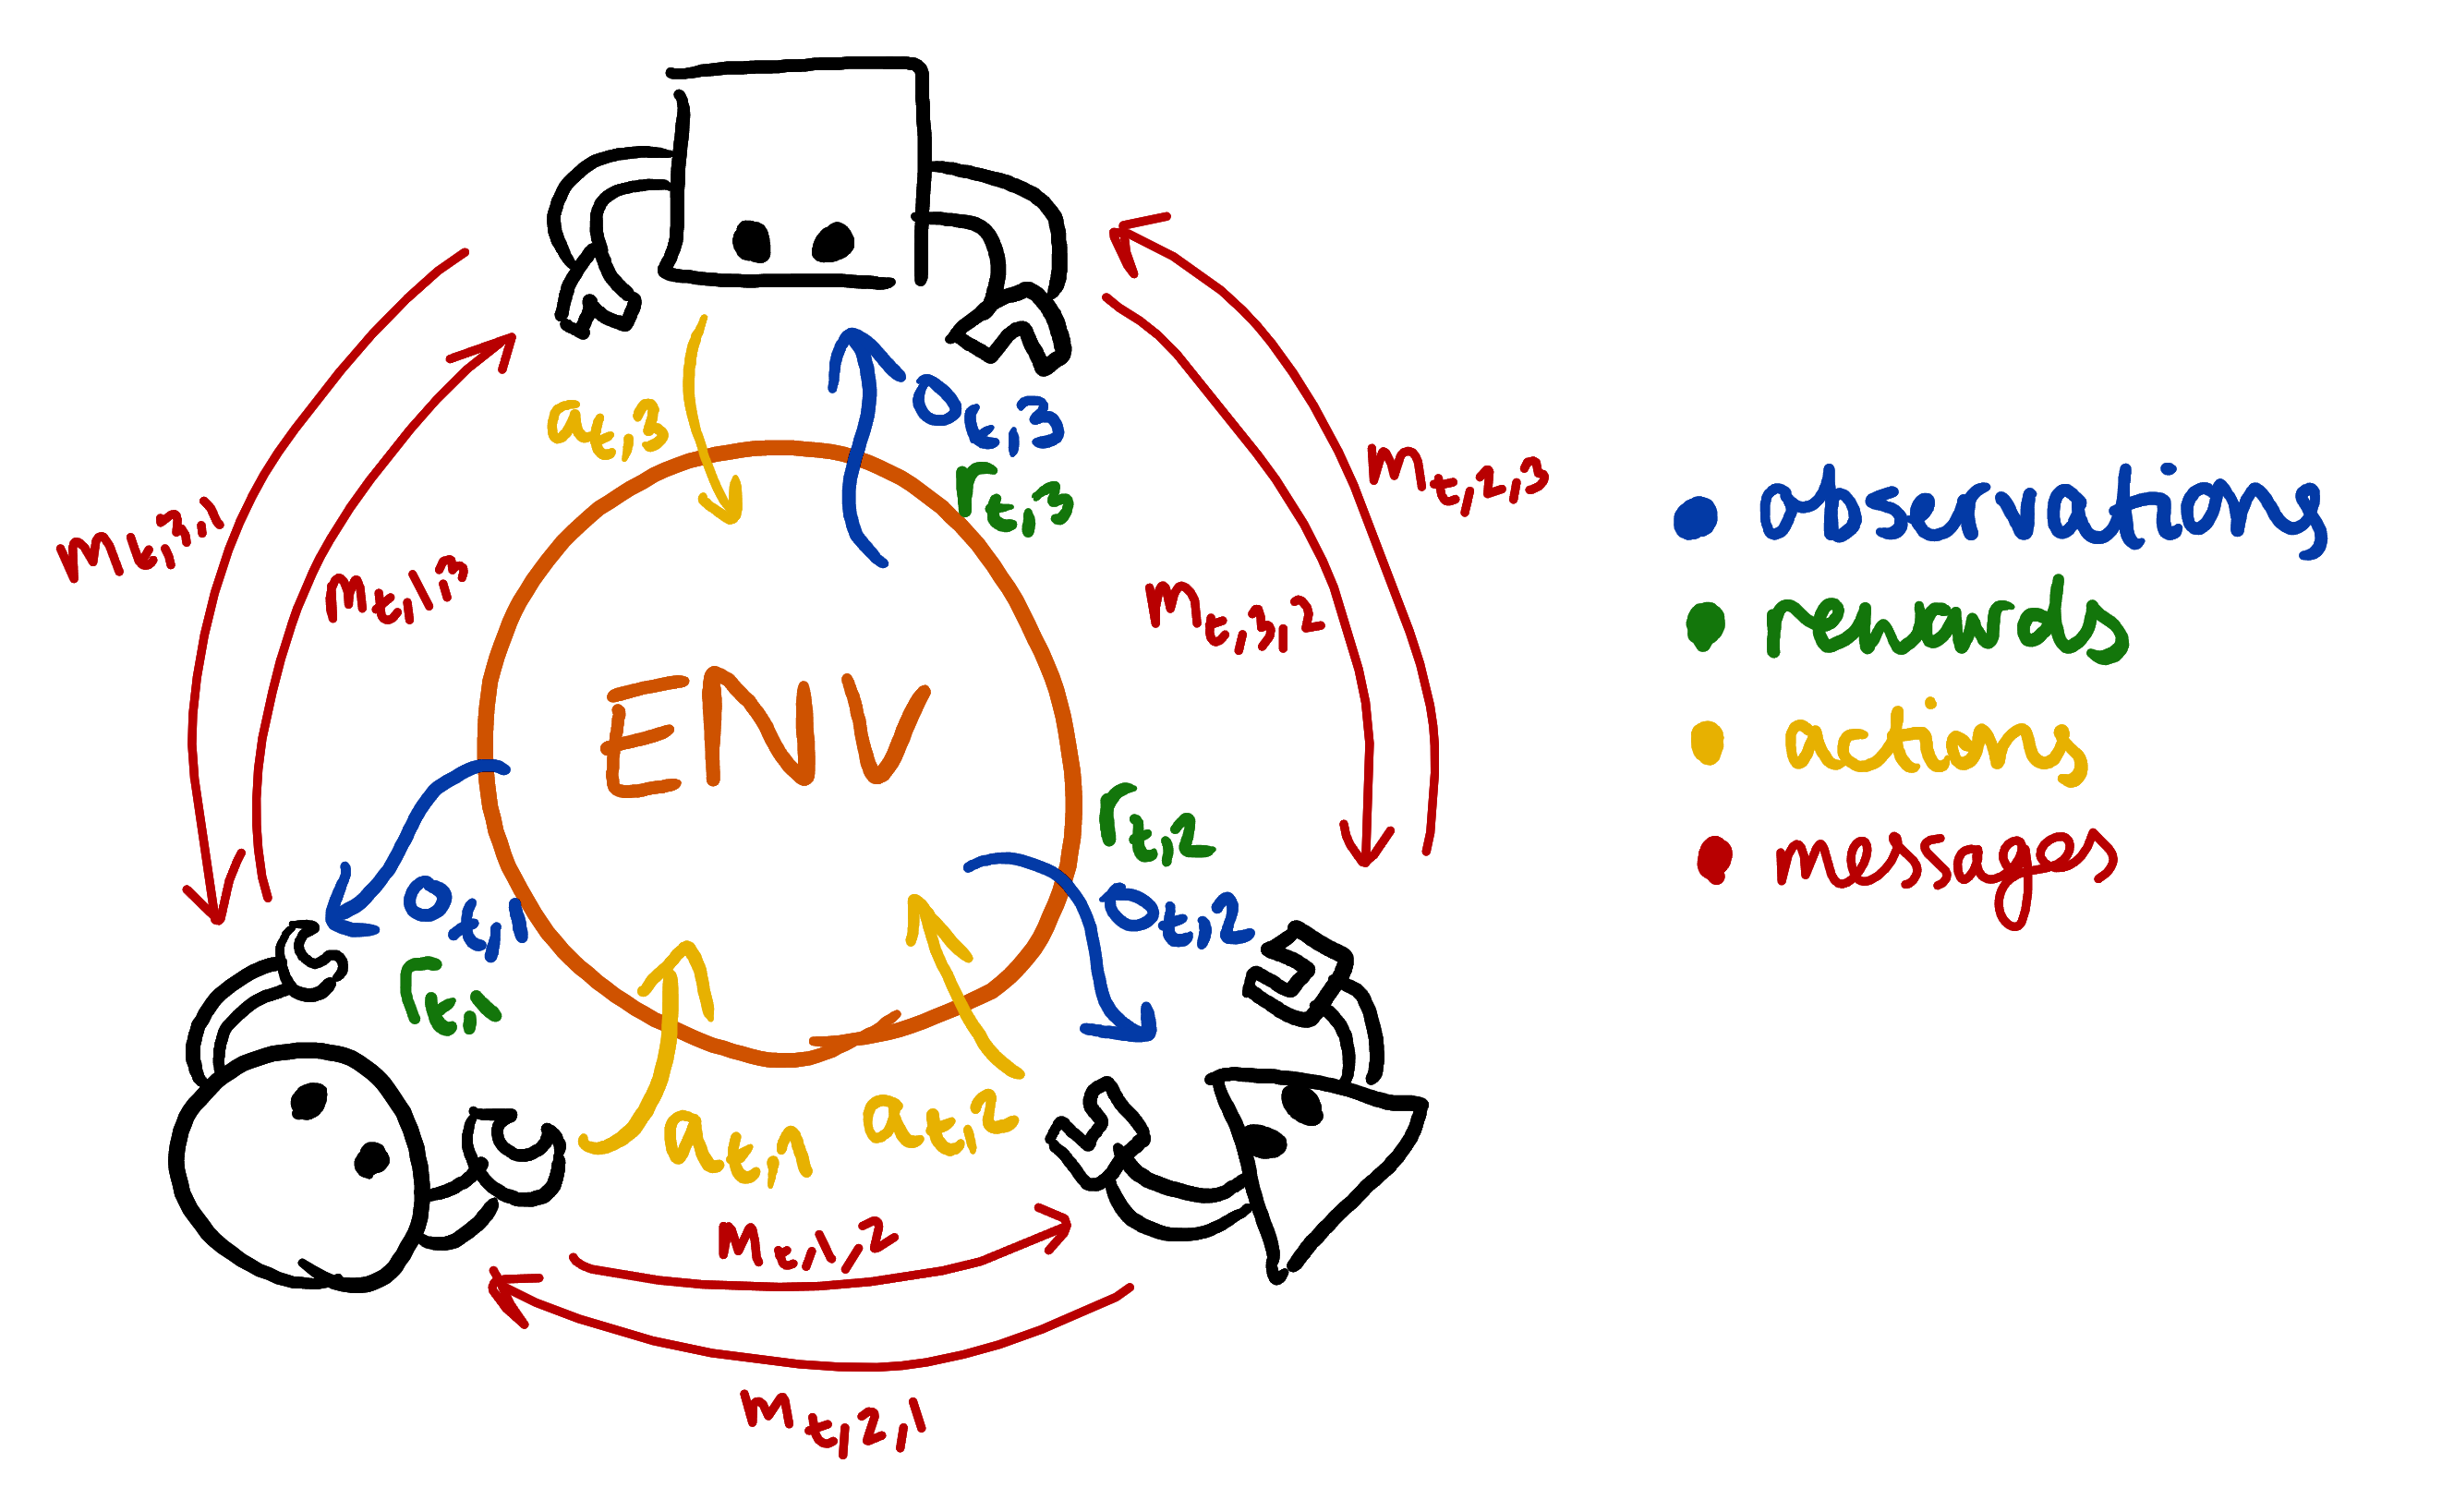 a t,3
o t,3
r t,3
m t,2,3
m t,3,1
m t,1,3
m t,3,2
ENV
o t,1
r t,1
r t,2
o t,2
a t,1
a t,2
m t,1,2
m t,2,1
observations
rewards
actions
messages